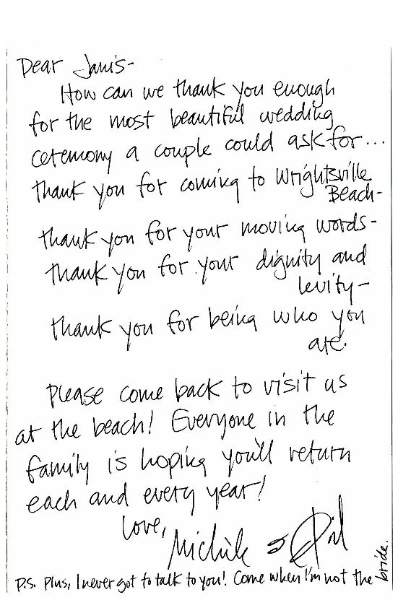 Dear Janis-
How can we thank you enough
for the most beautiful wedding
ceremony a couple could ask for...
thank you for coming to Wrightsville
Beach-
thank you for your moving words-
thank you for your dignity and
levity-
thank you for being who you
are.
Please come back to visit us
at the beach! Everyone in the
family is hoping you'll return
each and every year!
Love,
Michele &
P.S. Plus, I never got to talk to you! Come when I'm not the bride.